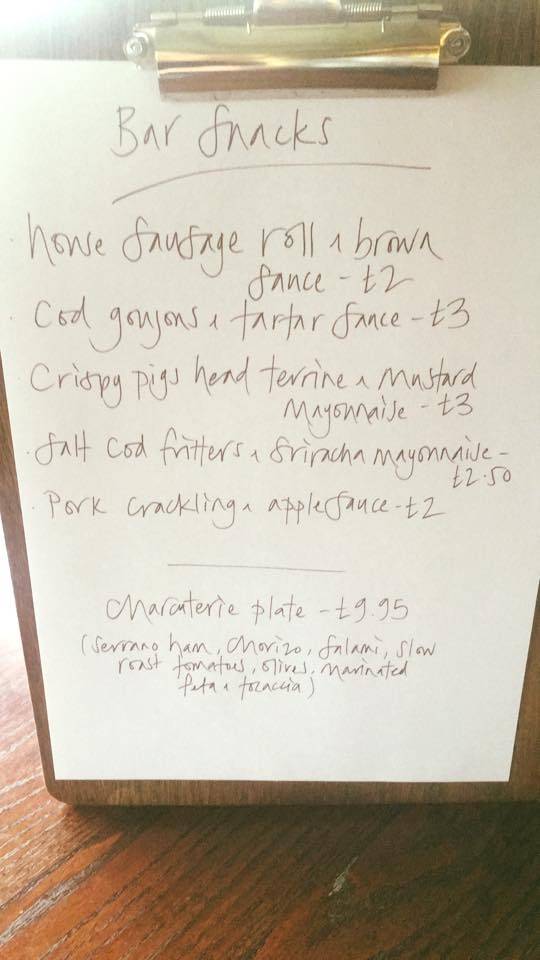 Bar Snacks
house sausage roll & brown
sauce - £2
Cod goujons & tartar sauce - £3
Crispy pigs head terrine & mustard
mayonnaise - £3
Salt cod fritters & Sriracha mayonnaise -
£2.50
Pork crackling & apple sauce - £2
Charcuterie plate - £9.95
(Serrano ham, chorizo, salami, slow
roast tomatoes, olives, marinated
feta & focaccia)